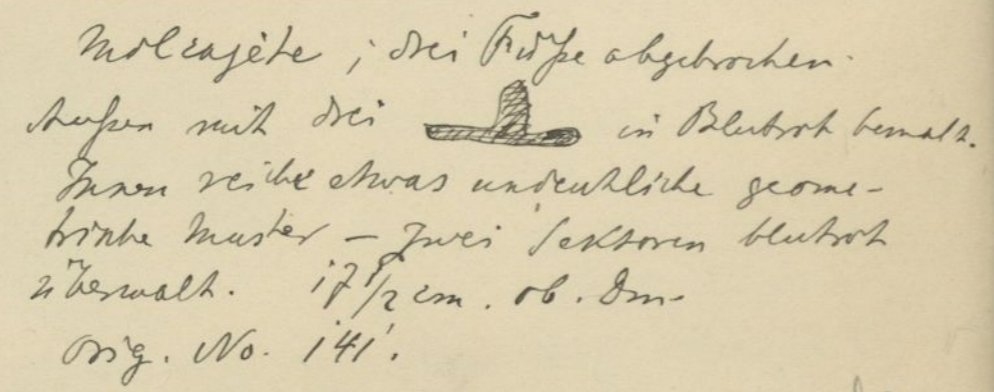 Molcajete; drei Füße abgebrochen.
Außen mit drei in Blutrot bemalt.
Innen reiche etwas undeutliche geome-
trische Muster – zwei Sektoren blutrot
übermalt. 17 1/2 cm. ob. Dm.
Orig. No. 141.